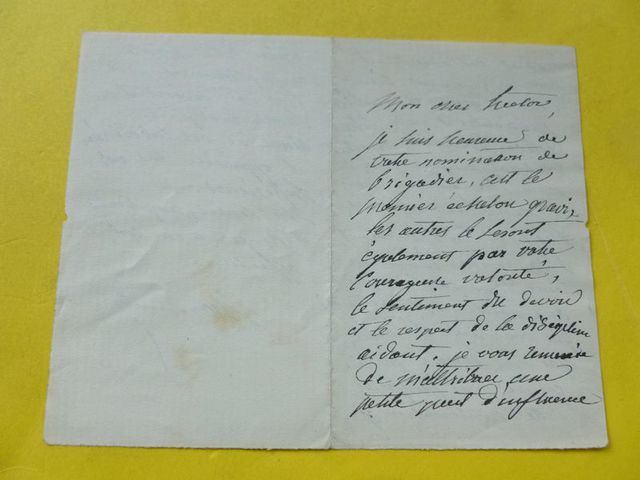 Mon cher Hector,
je suis heureux de
votre nomination de
brigadier, c'est le
premier échelon gravi,
les autres le seront
également par votre
courageuse volonté,
le sentiment du devoir
et le respect de la discipline
aidant. je vous remercie
de m'attribuer une
petite part d'influence